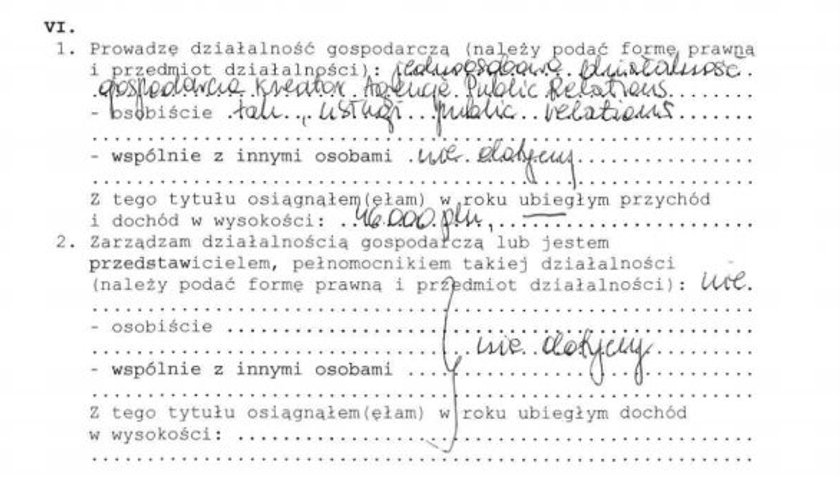 VI.
1. Prowadzę działalność gospodarczą (należy podać formę prawną
i przedmiot działalności): jednoosobowa działalność
gospodarcza Kreator Agencja Public Relations
- osobiście tak, usługi public relations
- wspólnie z innymi osobami nie dotyczy
Z tego tytułu osiągnąłem(ęłam) w roku ubiegłym przychód
i dochód w wysokości: 46.000 pln,
2. Zarządzam działalnością gospodarczą lub jestem
przedstawicielem, pełnomocnikiem takiej działalności
(należy podać formę prawną i przedmiot działalności): nie.
- osobiście
nie dotyczy
- wspólnie z innymi osobami
Z tego tytułu osiągnąłem(ęłam) w roku ubiegłym dochód
w wysokości: